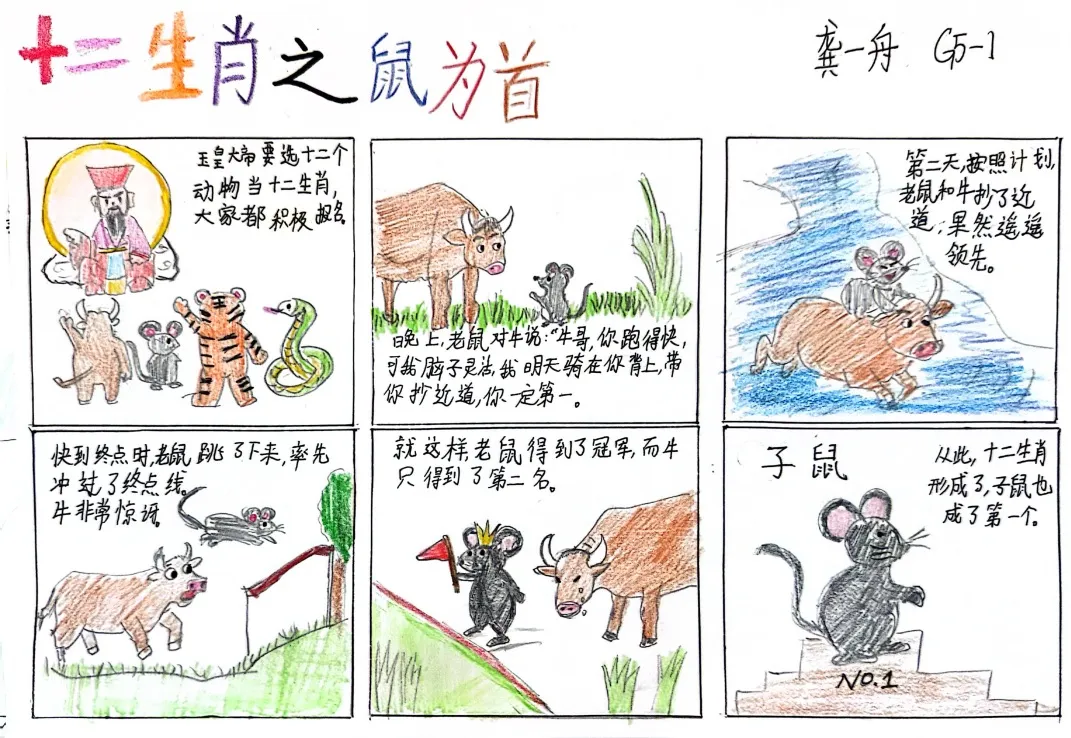 十二生肖之鼠为首
龚一舟 G5-1
玉皇大帝要选十二个
动物当十二生肖,
大家都积极报名
晚上,老鼠对牛说:“牛哥,你跑得快,
可我脑子灵活,我明天骑在你背上,带
你抄近道,你一定第一。
第二天,按照计划,
老鼠和牛抄了近
道,果然遥遥
领先。
快到终点时,老鼠跳了下来,率先
冲过了终点线。
牛非常惊讶。
就这样,老鼠得到了冠军,而牛
只得到了第二名。
子鼠
从此,十二生肖
形成了,子鼠也
成了第一个。
NO.1